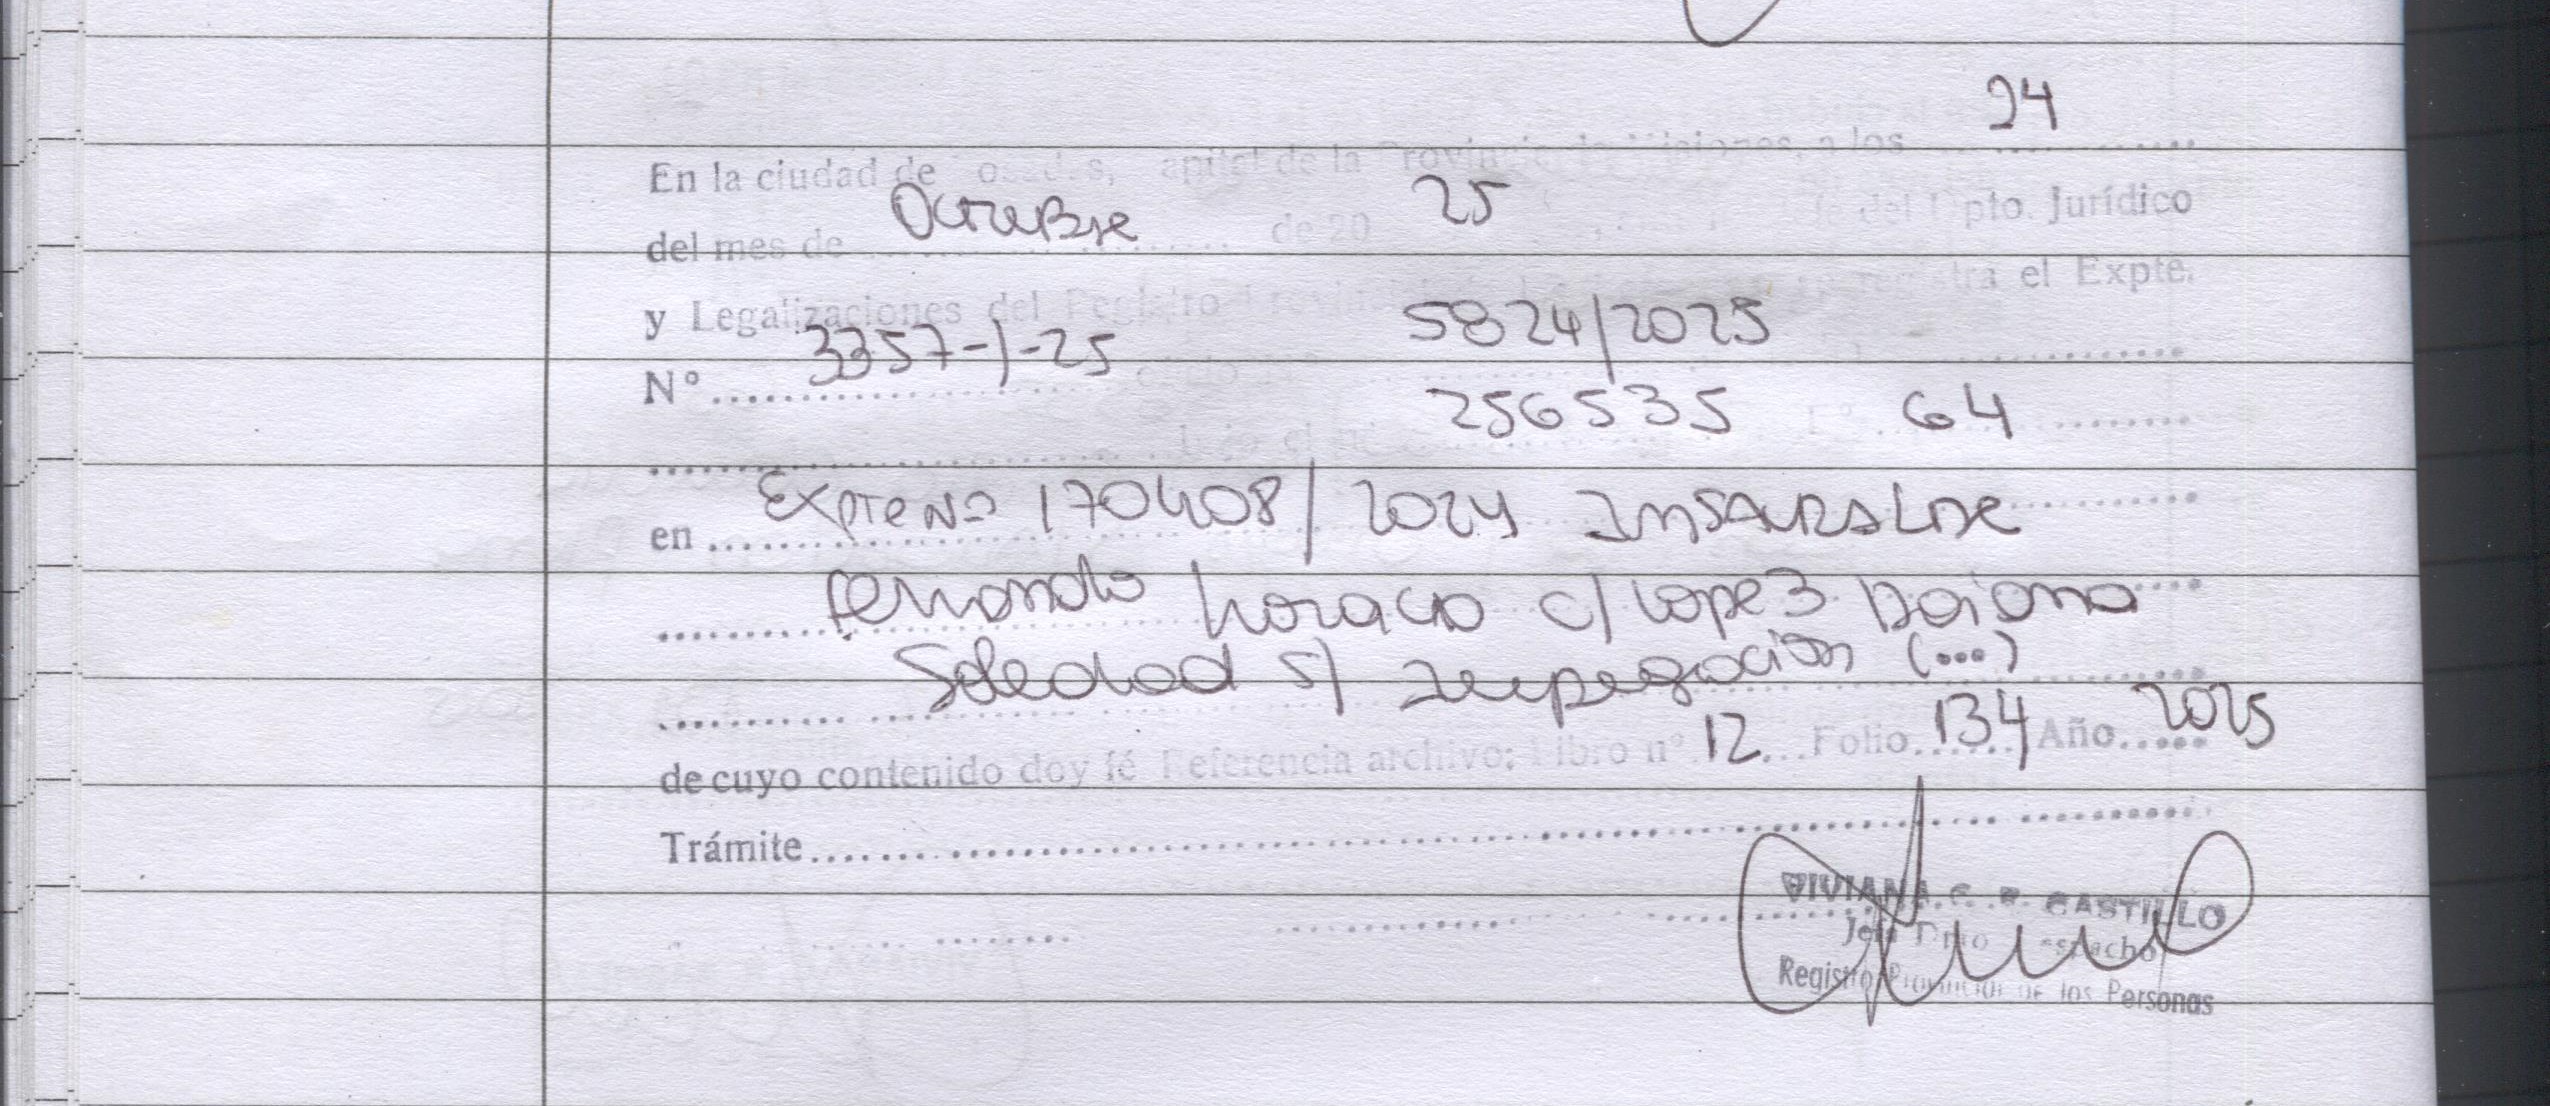 24
En la ciudad de Posadas, capital de la Provincia de Misiones, a los
del mes de Octubre de 20 25 del Dpto. Jurídico
y Legalizaciones del Registro Provincial registra el Expte.
N° 3357-I-25 5824/2025
bajo el n° 256535 F° 64
en Expte Nº 170408/2024 INSAURALDE
Fernando Horacio c/ Lopez Daiana
Soledad s/ Impugnacion (...)
de cuyo contenido doy fé Referencia archivo: Libro n° 12 Folio 134 Año 2025
Trámite
VIVIANA CASTILLO
Jefe Dpto Despacho
Registro Provincial de las Personas